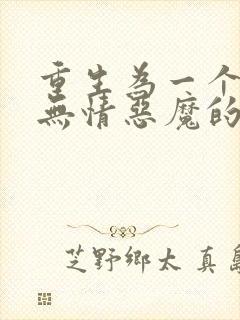 重生為一个
無情惡魔的
芝野鄉太 真島